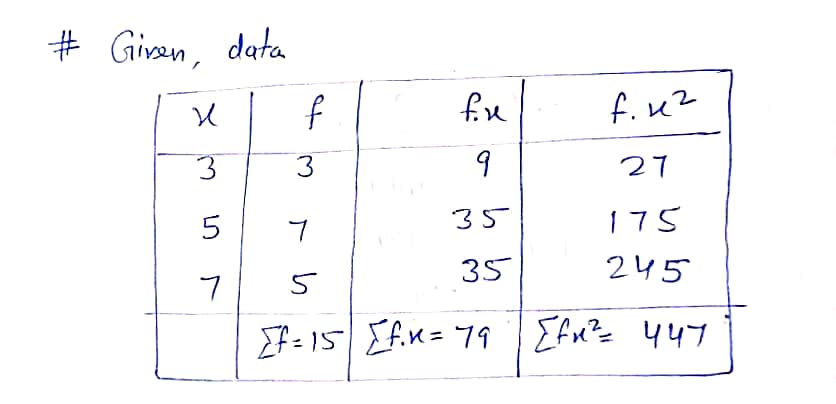 # Given, data
x f f.x f.x²
3 3 9 27
5 7 35 175
7 5 35 245
Σf=15 Σf.x=79 Σfx²= 447